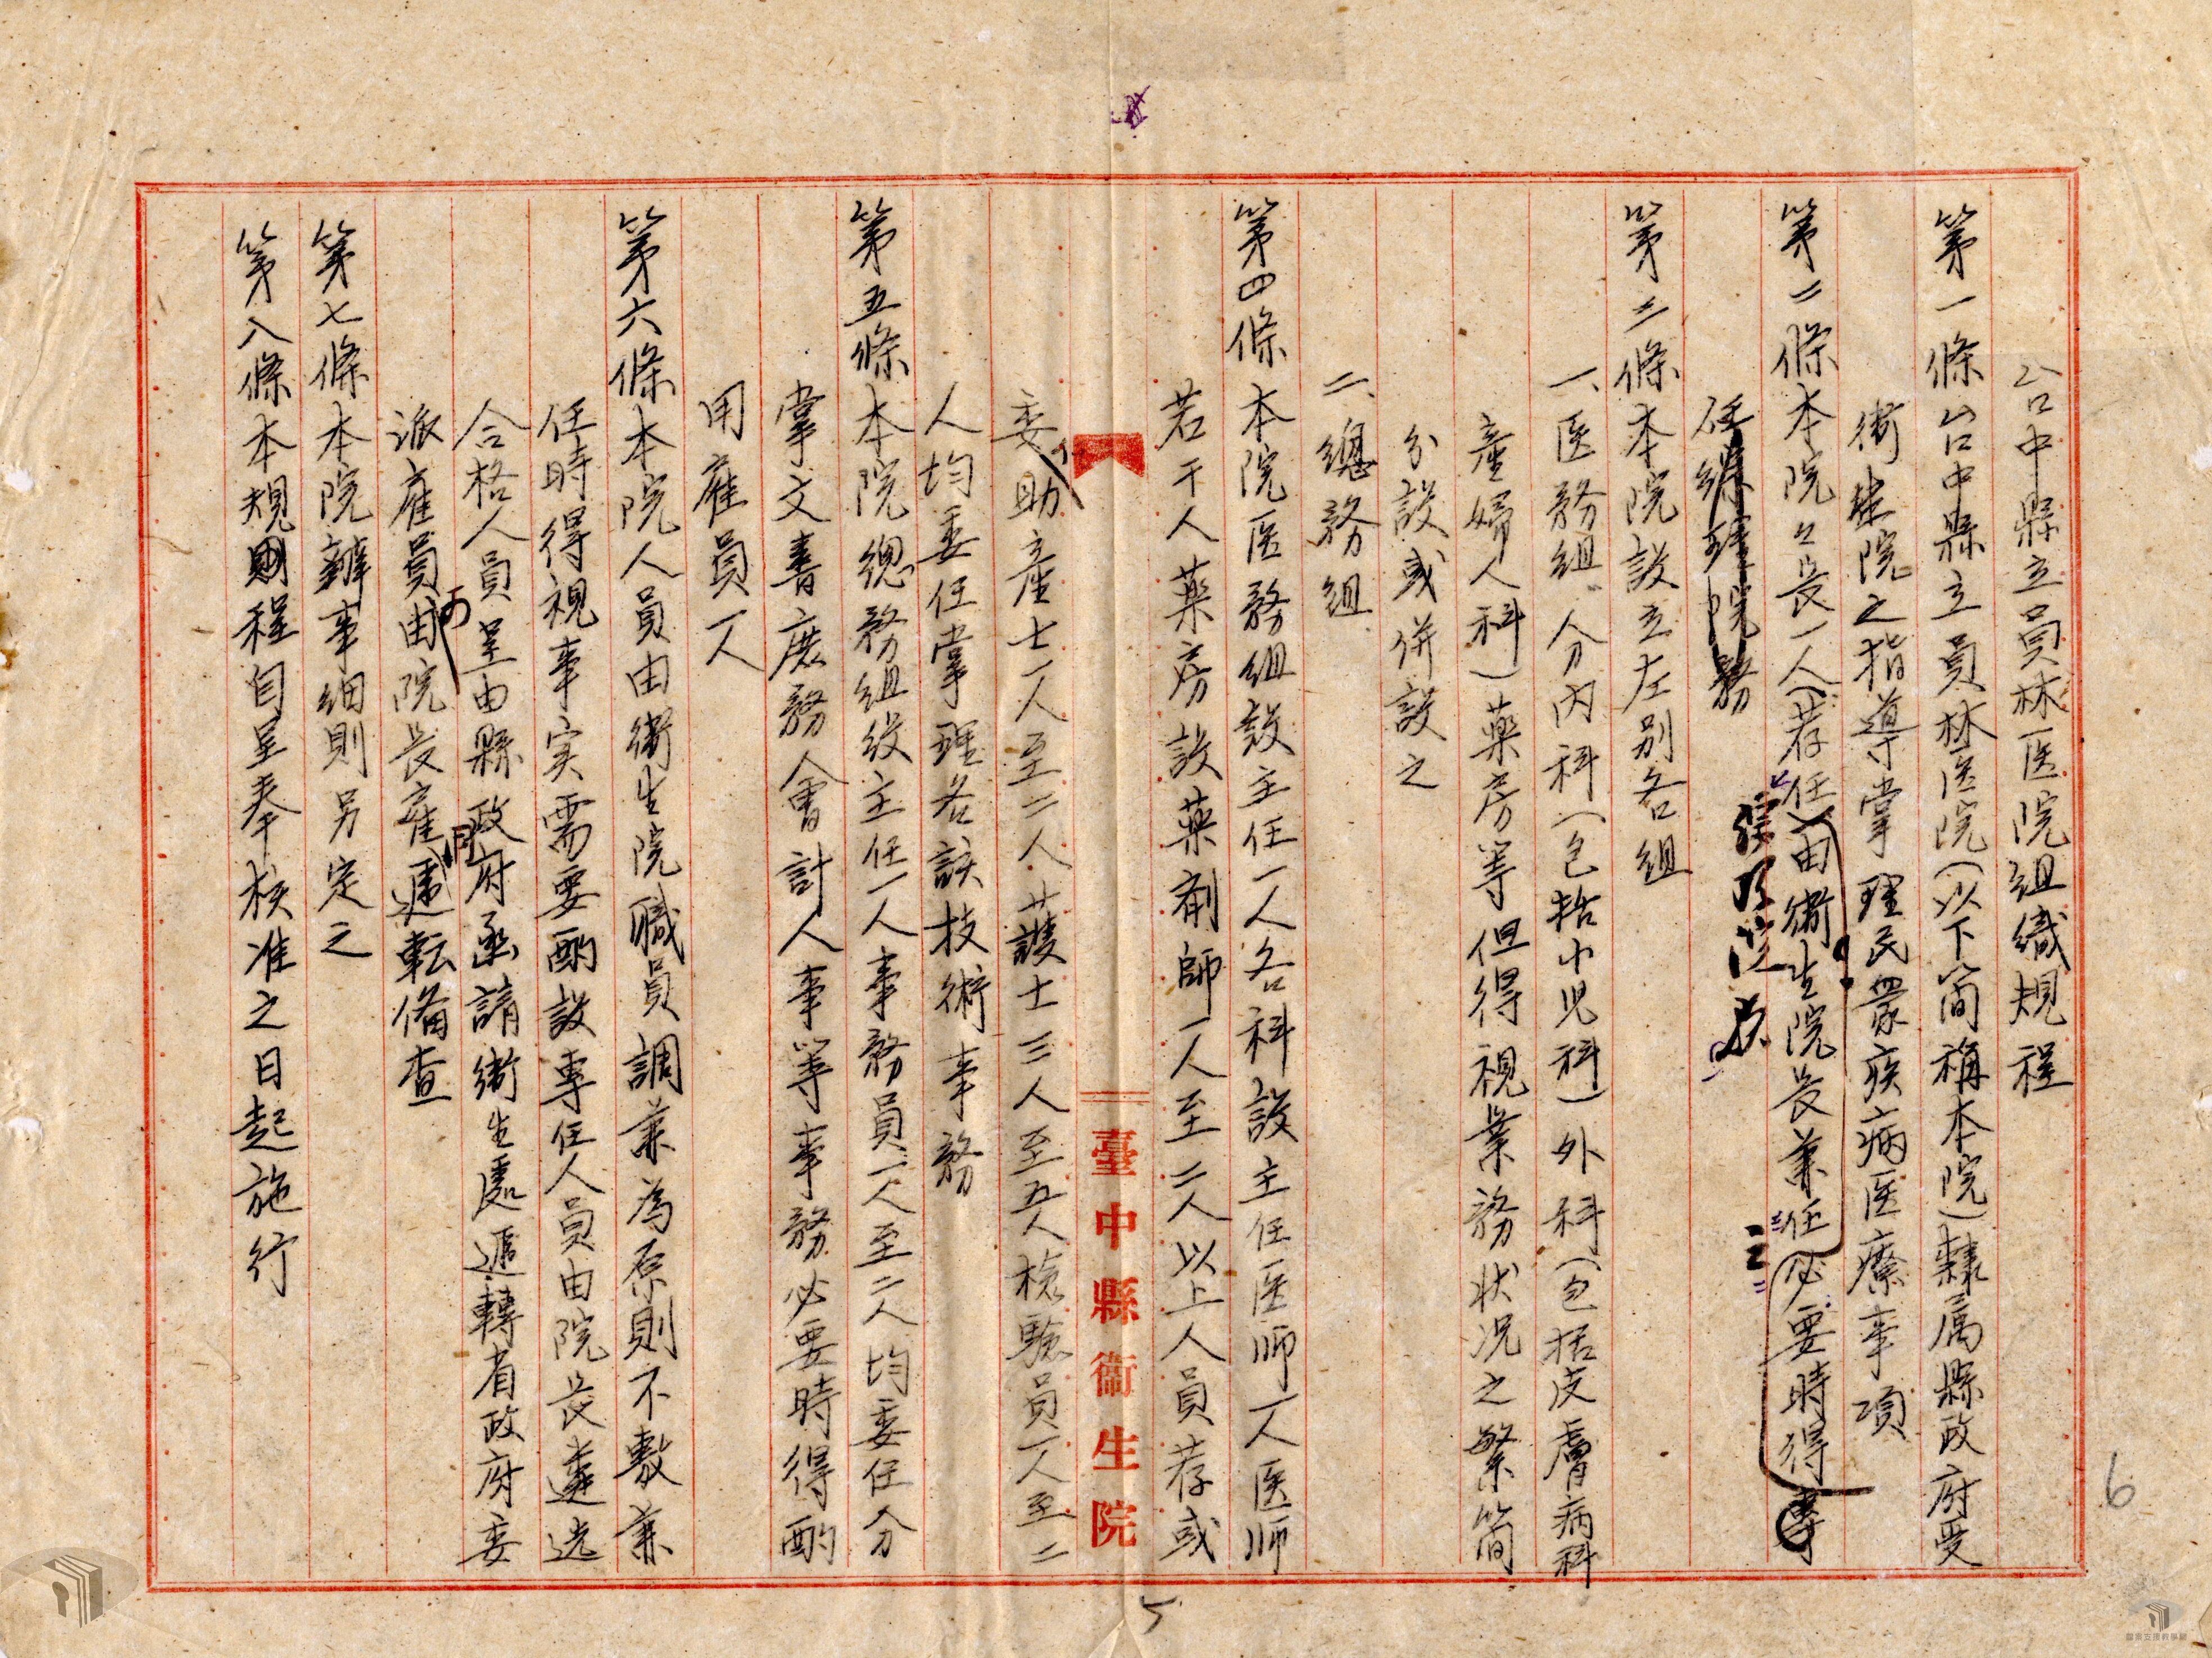 台中縣立員林医院組織規程
第一條台中縣立員林医院(以下简稱本院)隸属縣政府受
衛生院之指導掌理民眾疾病医療事項
第二條本院之長一人(荐任)由衛生院長兼任必要時得專
任綜理院務
綜理院務
第三條本院設立左別各組
一、医務組 分内科(包括小児科)外科(包括皮膚病科
產婦人科)藥房等但得視業務状况之繁简
分設或併設之
二、總務組
第四條本院医務組設主任一人各科設主任医师一人医师
若干人藥房設藥劑師一人至二人以上人員荐或
委助產士一人至二人護士三人至五人檢驗員一人至二
臺中縣衞生院
人均委任掌理各該技術事務
第五條本院總務組設主任一人事務員一人至二人均委任分
掌文書庶務會計人事等事務必要時得酌
用雇員一人
第六條本院人員由衛生院職員調兼為原則不敷兼
任時得視事实需要酌設專任人員由院長遴选
合格人員呈由縣政府函請衛生處遞轉省政府委
派雇員由院長雇遞転俻查
第七條本院辦事細則另定之
第八條本規則程自呈奉核准之日起施行
5
6
檔案支援教學網